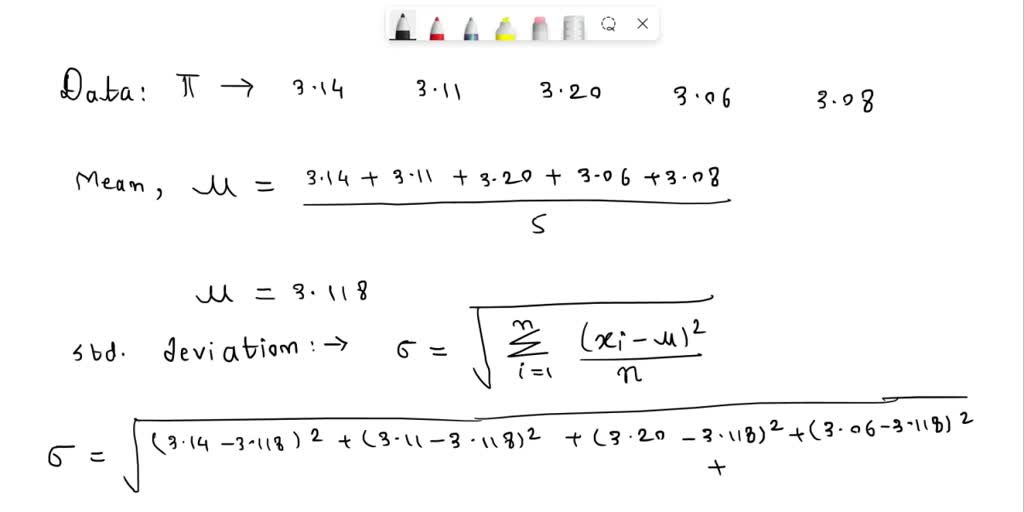 Data: π → 3.14 3.11 3.20 3.06 3.08
Mean, μ = (3.14 + 3.11 + 3.20 + 3.06 + 3.08) / 5
μ = 3.118
std. deviation: → σ = √(∑_{i=1}^{n} (xi - μ)² / n)
σ = √((3.14 - 3.118)² + (3.11 - 3.118)² + (3.20 - 3.118)² + (3.06 - 3.118)²
+